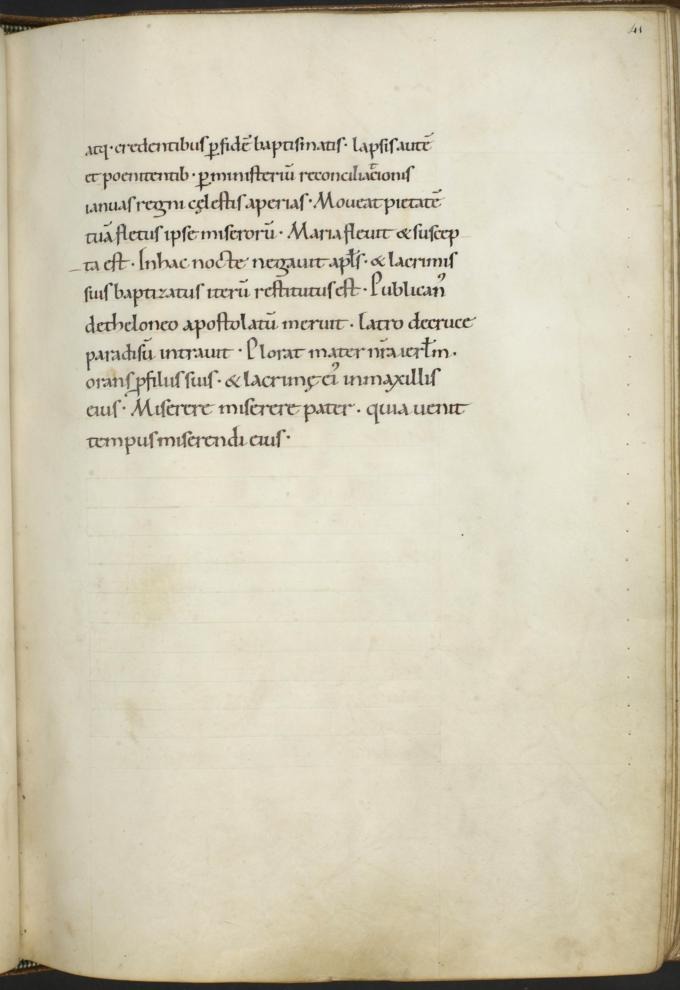 41
atq· credentibus ꝑfidē baptismatis· lapsis autē
et poenitentib· ꝑ ministeriū reconciliacionis
ianuas regni cęlestis aperias· Moueat pietatē
tuā fletus ipse miserorū· Maria fleuit & suscep
ta est· In hac nocte negauit apłs· & lacrimis
suis baptizatus iterū restitutus est· Publican᾿
de theloneo apostolatū meruit· latro de cruce
paradisū intrauit· Plorat mater nr̄a ierłm·
orans ꝑ filiis suis· & lacrimę ei᾿ in maxillis
eius· Miserere miserere pater· quia uenit
tempus miserendi eius·